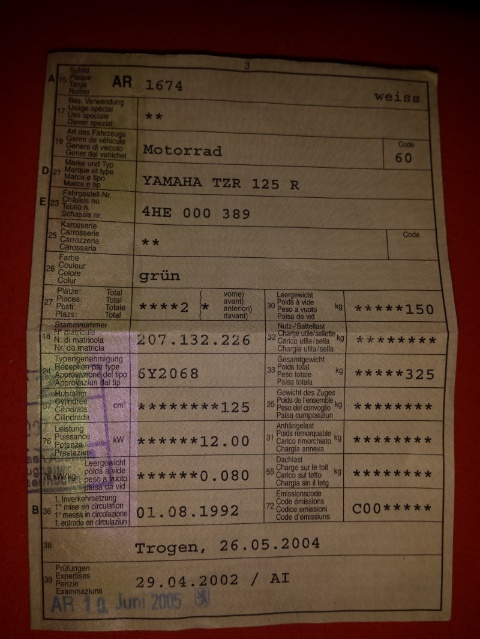 3
A 15 Schild Plaque Targa Numer AR 1674 weiss
17 Bes. Verwendung Usage spécial Uso speciale Diever spezial **
19 Art des Fahrzeugs Genre de véhicule Genere di veicolo Gener dal vehichel Motorrad Code 60
D 21 Marke und Typ Marque et type Marca e tipo Marca e tip YAMAHA TZR 125 R
E 23 Fahrgestell-Nr. Châssis no Telaio n. Schassis nr. 4HE 000 389
25 Karosserie Carrosserie Carrozzeria Carossaria ** Code
26 Farbe Couleur Colore Colur grün
27 Plätze: Total Places: Total Posti: Totale Plazs: Total ****2 (* vorne) avant) anteriori) davant) 30 Leergewicht Poids à vide Peso a vuoto Paisa da vid kg *****150
18 Stammnummer No matricule N. di matricola Nr. da matricla 207.132.226 32 Nutz-/Sattellast Charge utile/sellette Carico utile/sella Chargia utila/sella kg ********
24 Typengenehmigung Réception par type Approvazione del tipo Approvaziun dal tip 6Y2068 33 Gesamtgewicht Poids total Peso totale Paisa totala kg *****325
37 Hubraum Cylindrée Cilindrata Cilindrada cm³ ********125 35 Gewicht des Zuges Poids de l'ensemble Peso del convoglio Paisa cumposiziun kg ********
76 Leistung Puissance Potenza Prestaziun kW ******12.00 31 Anhängelast Poids remorquable Carico rimorchiato Chargia annexa kg ********
78 kW/kg Leergewicht poids à vide peso a vuoto paisa da vid ******0.080 55 Dachlast Charge sur le toit Carico sul tetto Chargia sin il tetg kg ********
B 36 1. Inverkehrsetzung 1re mise en circulation 1a messa in circolazione 1. entrada en circulaziun 01.08.1992 72 Emissionscode Code d'émissions Codice emissioni Code d'emissiuns C00*****
38 Trogen, 26.05.2004
39 Prüfungen Expertises Perizie Examinaziuns 29.04.2002 / AI
AR 10. Juni 2005